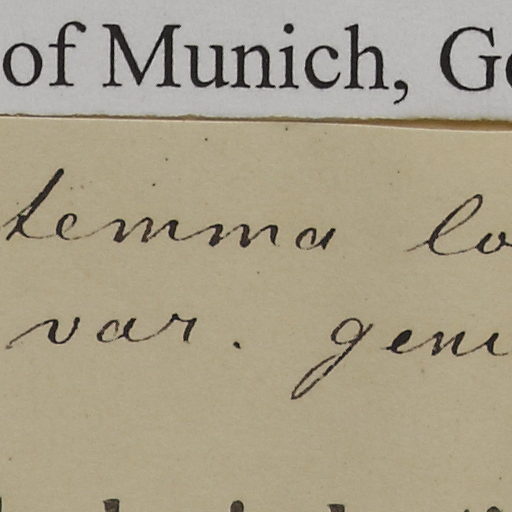 of Munich, Ge
temma lo
var. geni